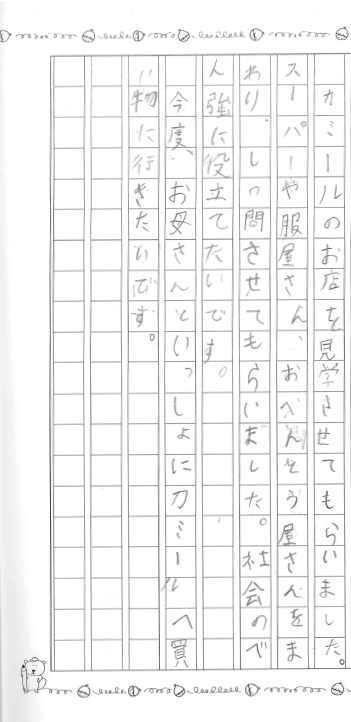 カミールのお店を見学させてもらいました。
スーパーや服屋さん、おべんとう屋さんをま
わり、しつ問させてもらいました。社会のべ
ん強に役立てたいです。
今度、お母さんといっしょにカミールへ買
い物に行きたいです。